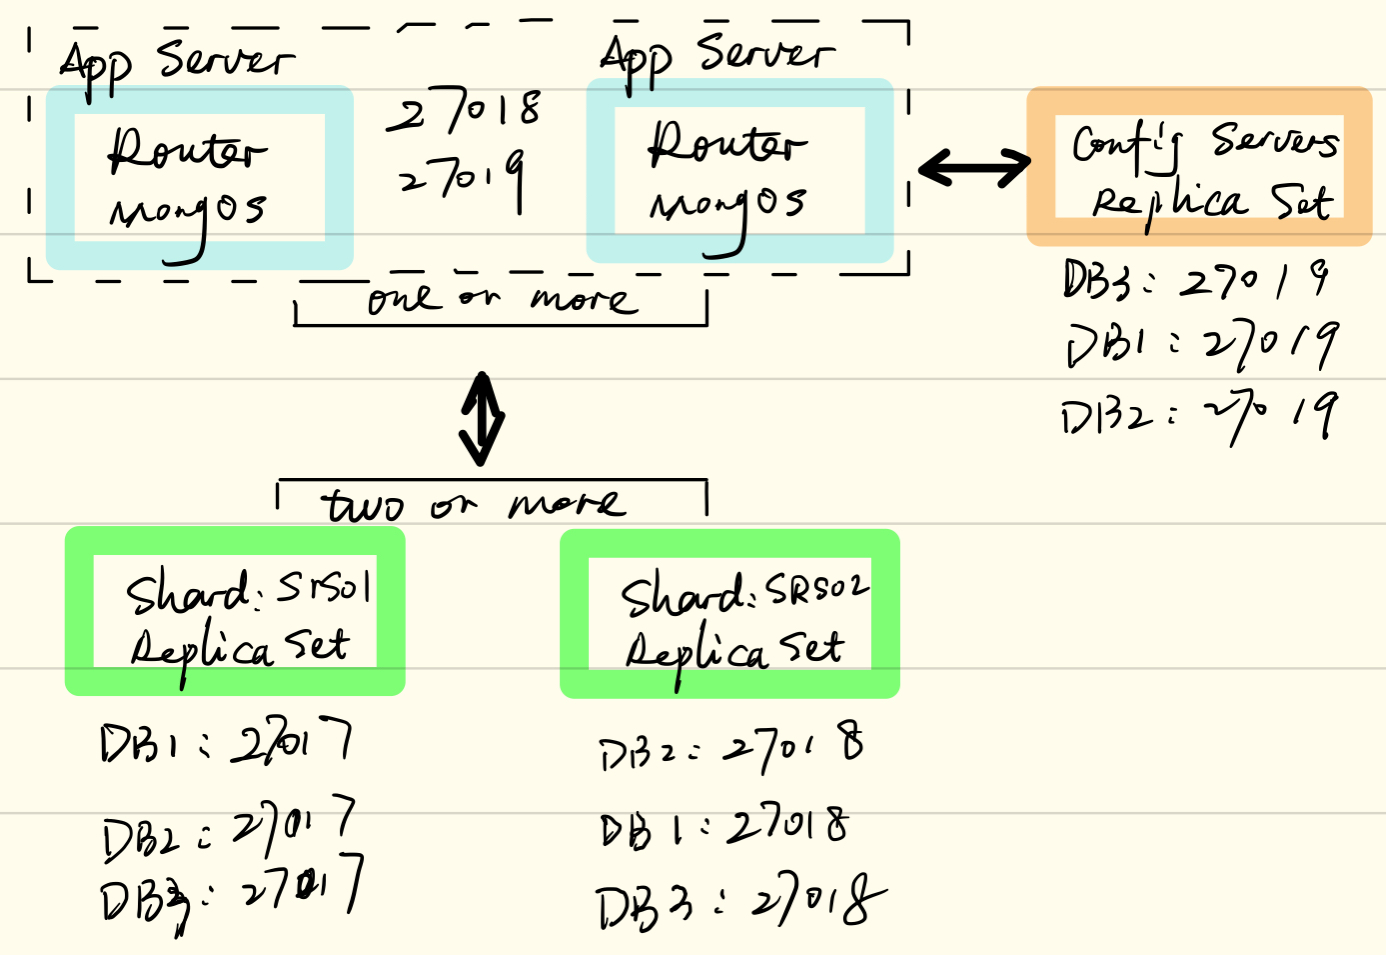 App Server
Router
MongOS
27018
27019
App Server
Router
MongOS
one or more
Config Servers
Replica Set
DB3: 27019
DB1: 27019
DB2: 27019
two or more
Shard: Srs01
Replica Set
DB1: 27017
DB2: 27017
DB3: 27017
Shard: SRS02
Replica Set
DB2: 27018
DB1: 27018
DB3: 27018